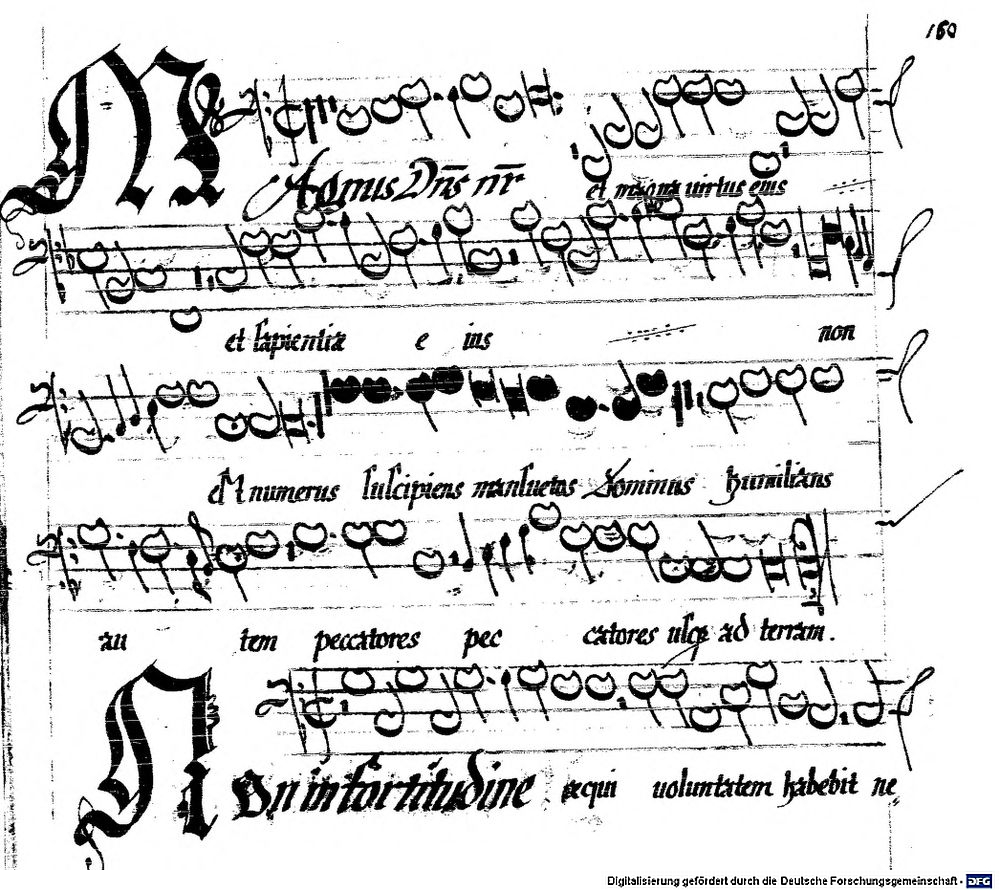 160
MAgnus Dñs nr̄ et magna uirtus eius
et sapientiæ e ius non
est numerus suscipiens mansuetos Dominus humilians
au tem peccatores pec catores usq ad terram.
NOn in fortitudine æqui uoluntatem habebit ne
Digitalisierung gefördert durch die Deutsche Forschungsgemeinschaft - DFG